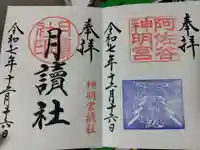 奉拝
阿佐谷
神明宮
令和七年十二月十六日
奉拝
月讀社
令和七年十二月十六日